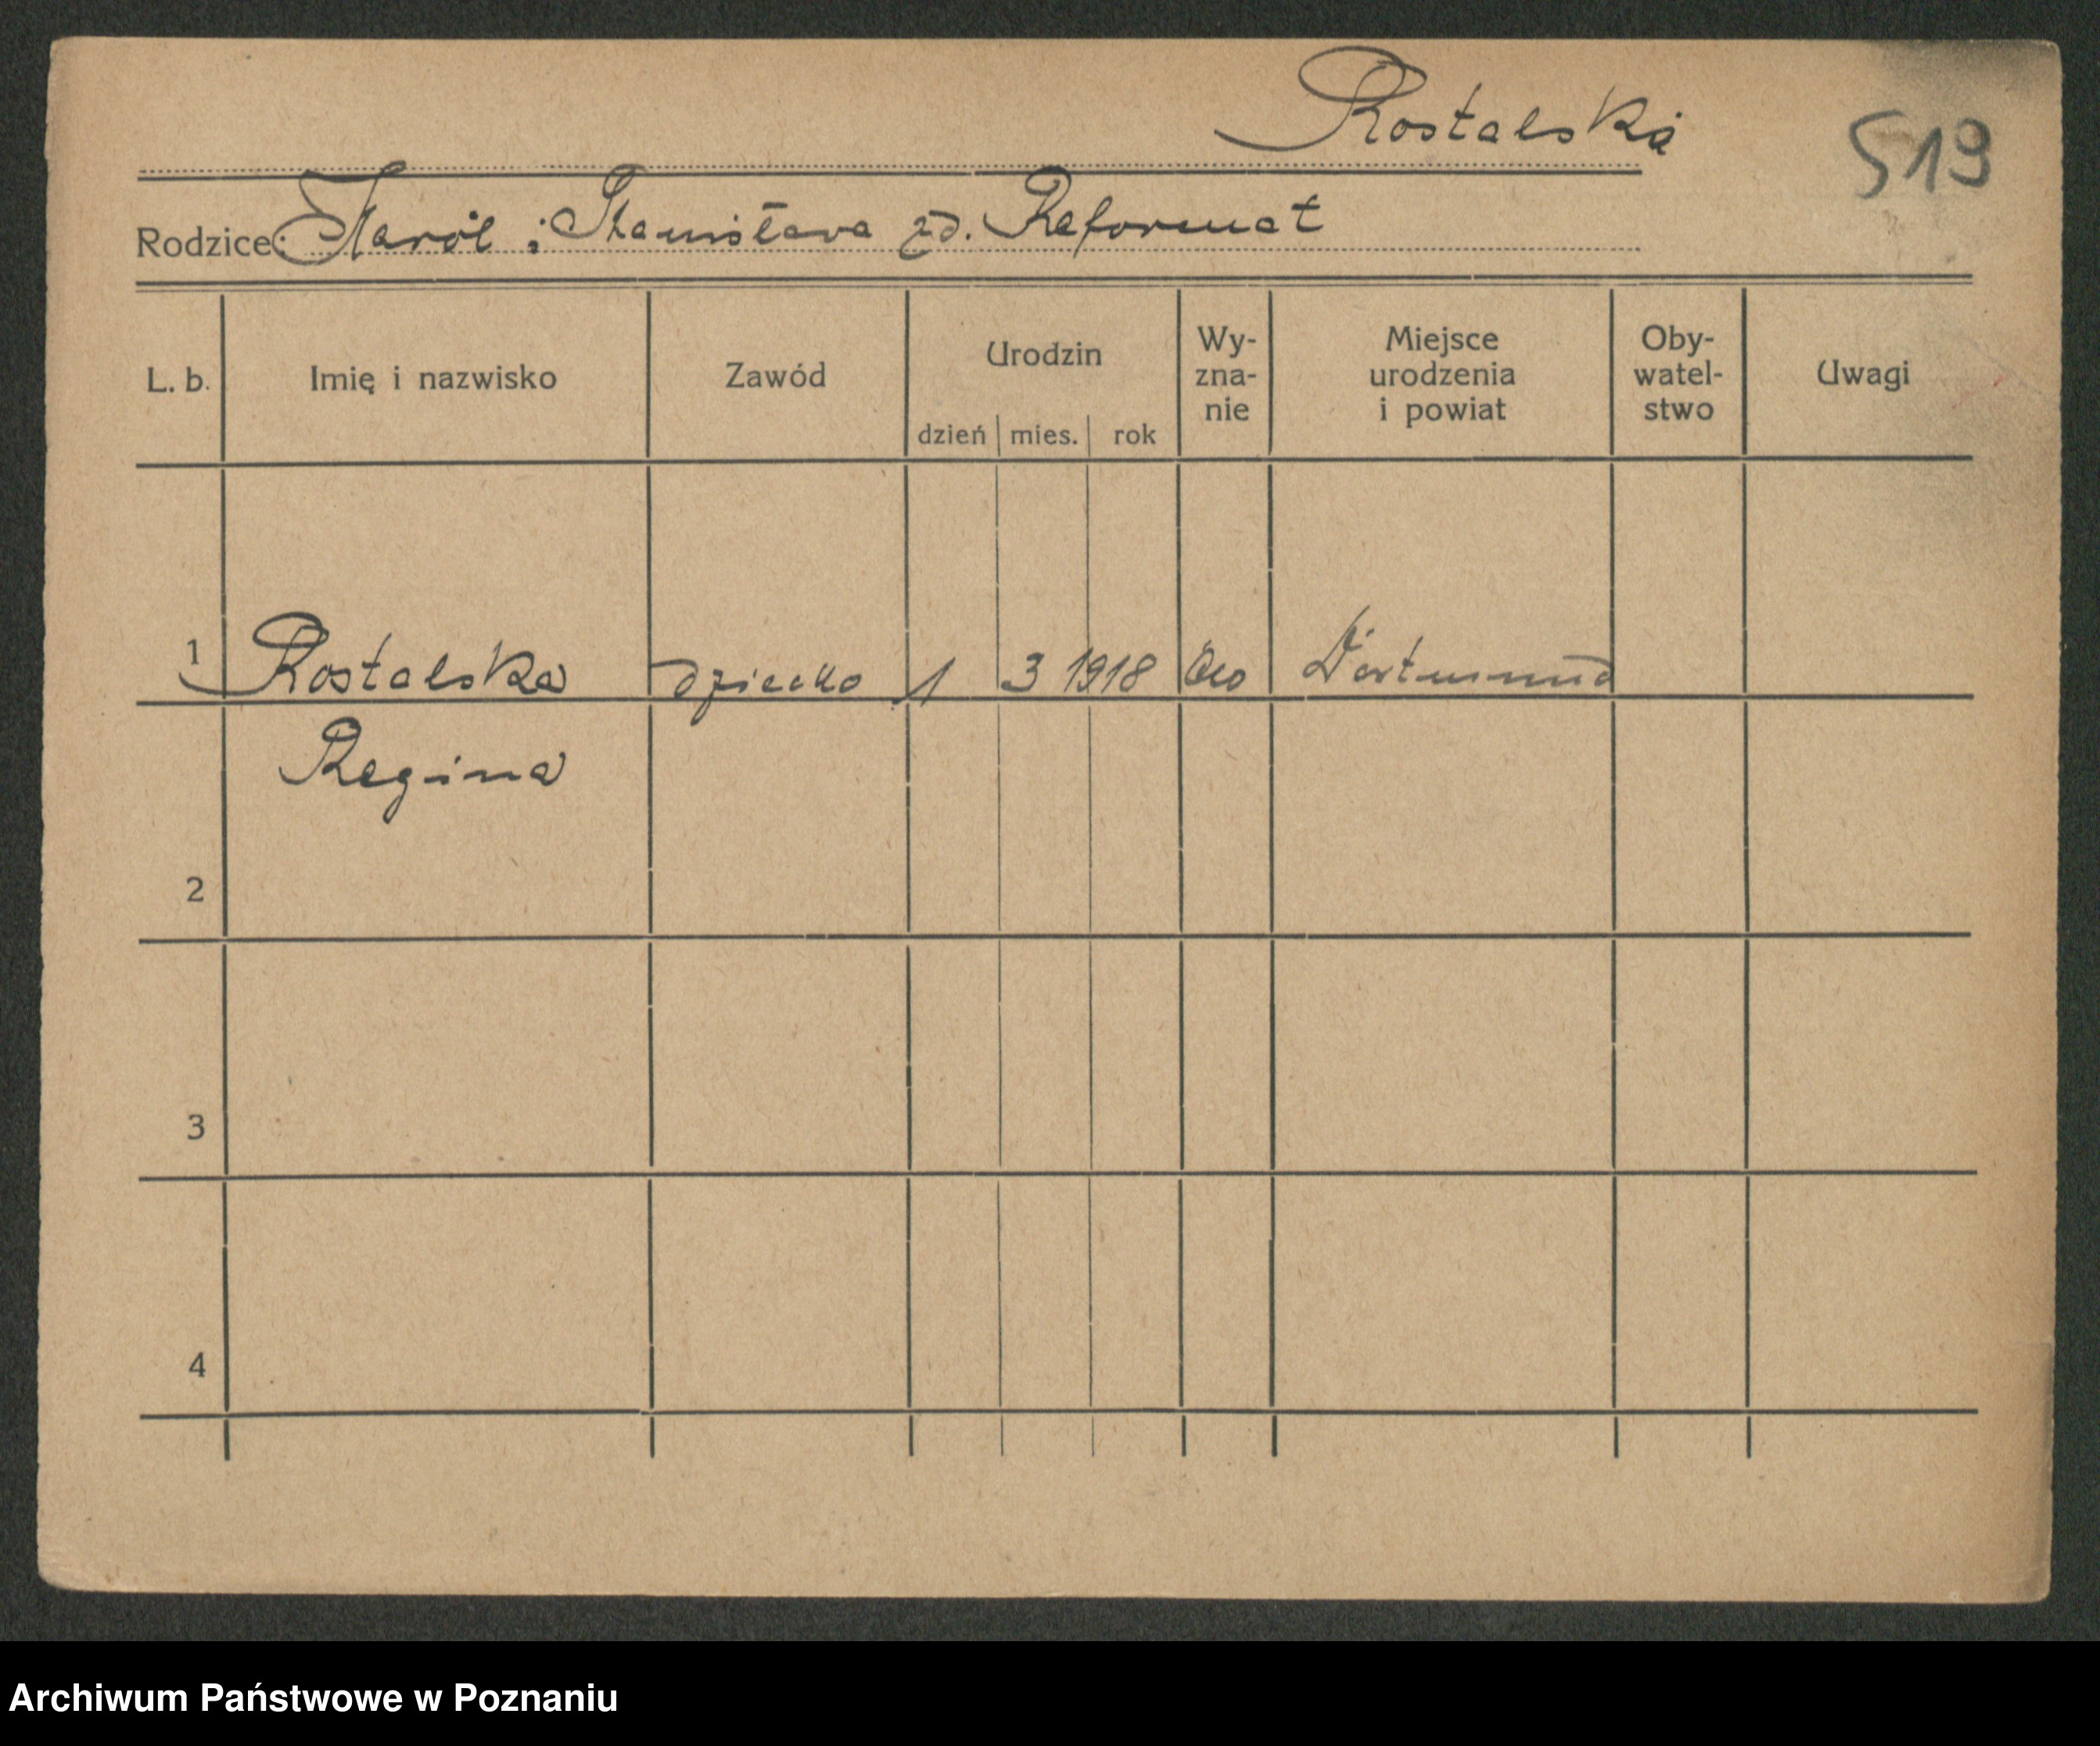 Rostalska
519
Rodzice: Karól i Stanisława zd. Reformat
L. b. Imię i nazwisko Zawód Urodzin dzień mies. rok Wy-zna-nie Miejsce urodzenia i powiat Oby-watel-stwo Uwagi
1 Rostalska dziecko 1 3 1918 Dortmund
Regina
2
3
4
Archiwum Państwowe w Poznaniu